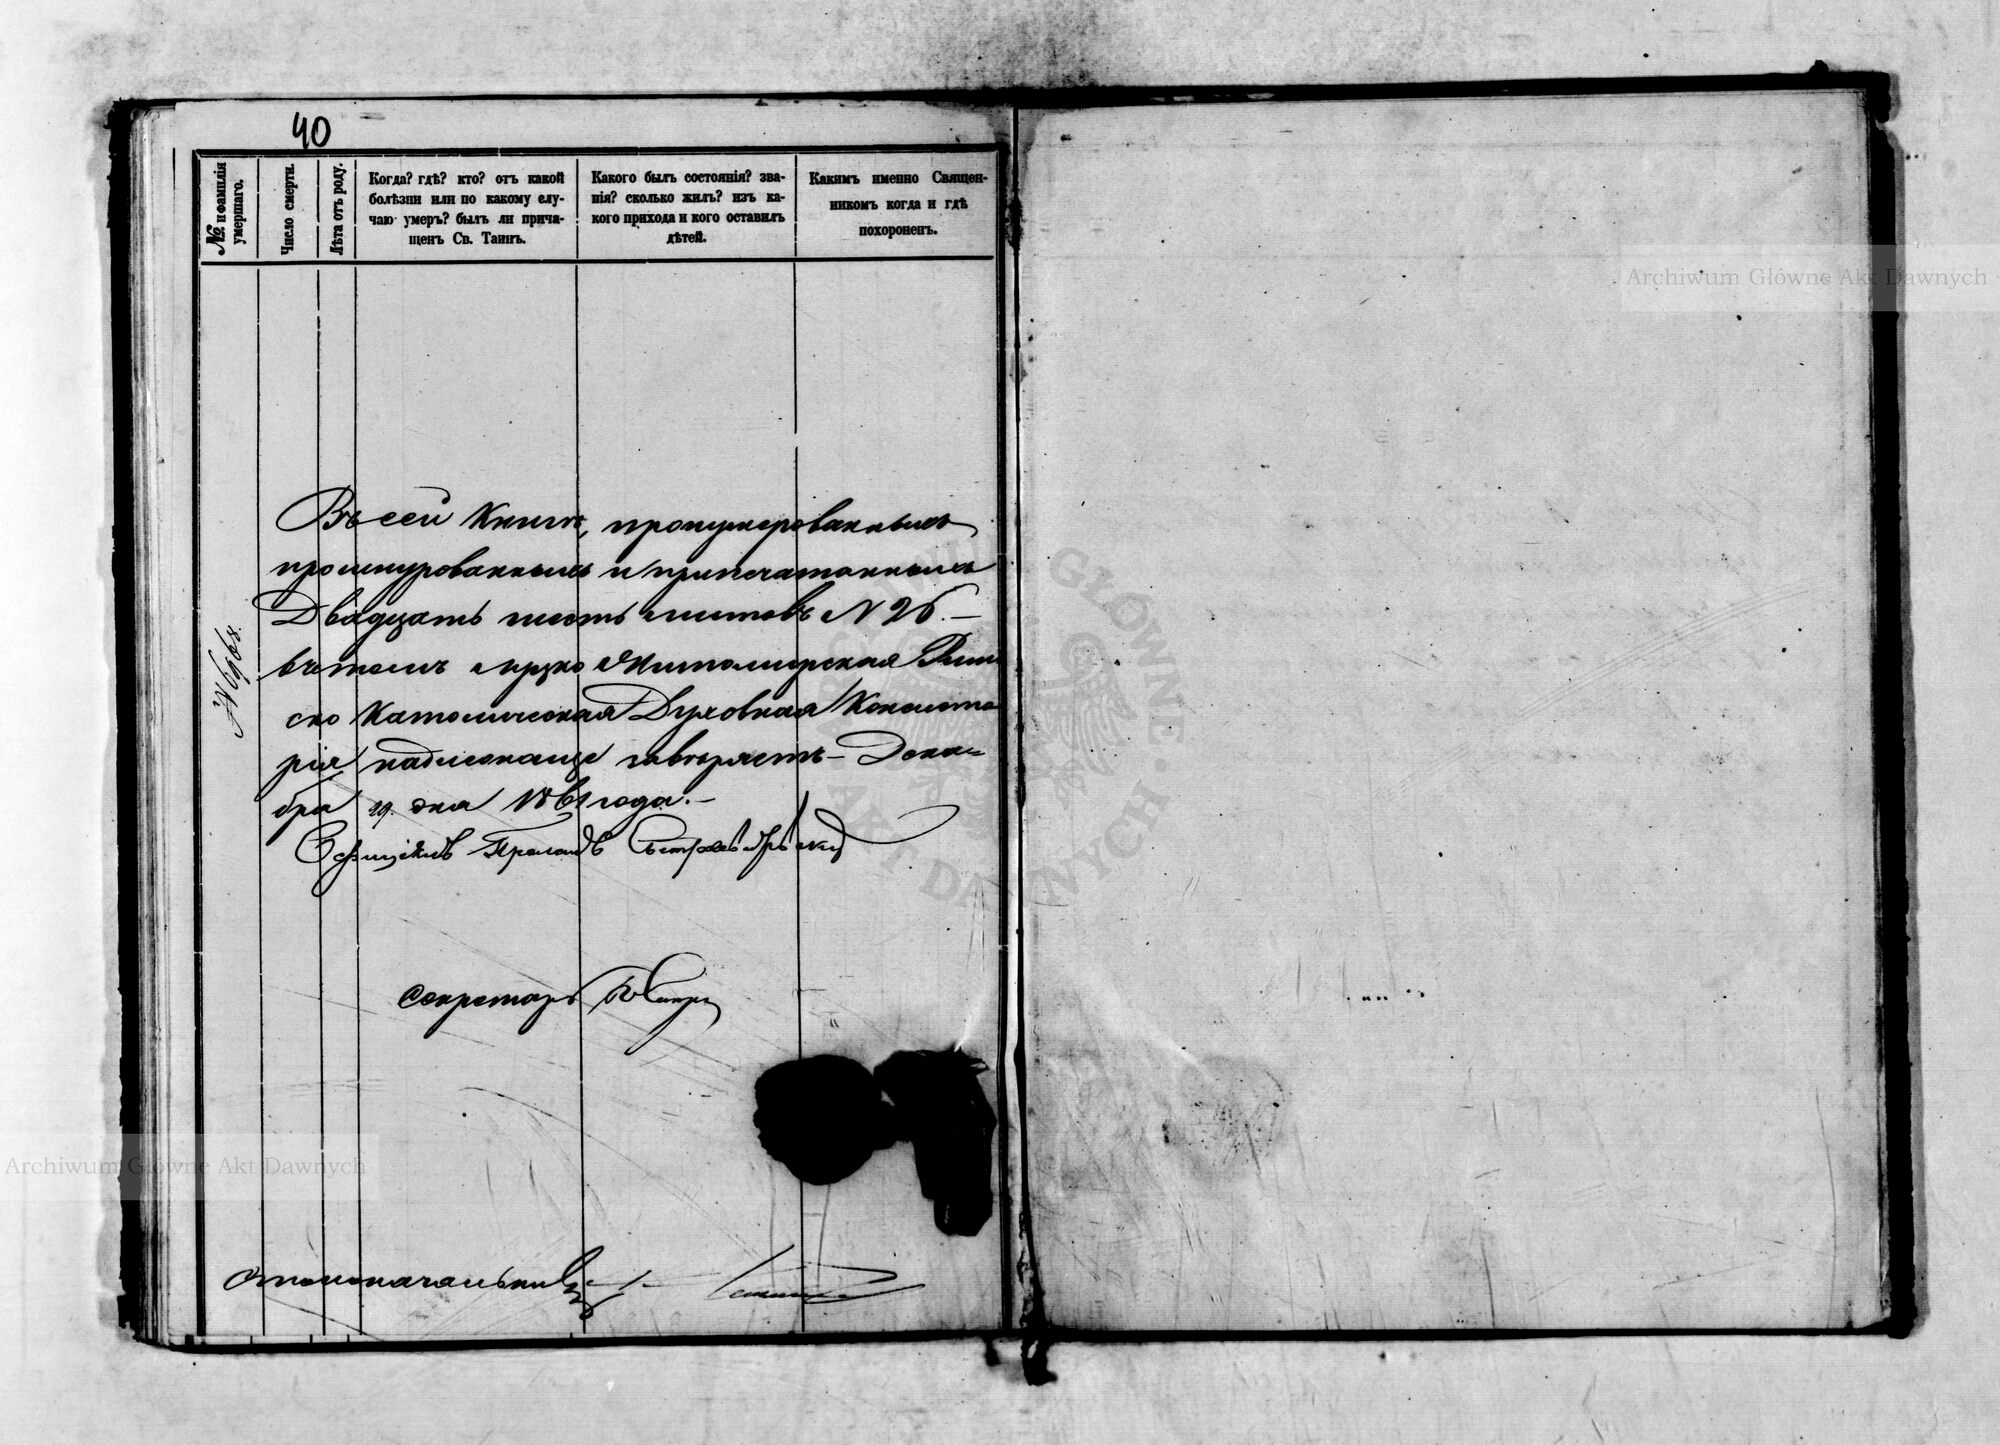 40
№. и фамилія
умершаго.
Число смерти.
Лѣта отъ роду.
Когда? гдѣ? кто? отъ какой
болѣзни или по какому слу-
чаю умеръ? былъ ли прича-
щенъ Св. Таинъ.
Какого былъ состоянія? зва-
нія? сколько жилъ? изъ ка-
кого прихода и кого оставилъ
дѣтей.
Какимъ именно Священ-
никомъ когда и гдѣ
похороненъ.
Въ сей Книгѣ, пронумерованныхъ
прошнурованныхъ и припечатанныхъ
Двадцать шесть листовъ N 26.—
въ томъ Луцко Житомирская Рим
ско Католическая Духовная Консисто
рія надлежаще завѣряетъ — Дека=
бря 29. дня 1861 года.—
Прелатъ
Секретарь
Столоначальникъ
Archiwum Główne Akt Dawnych
Archiwum Główne Akt Dawnych